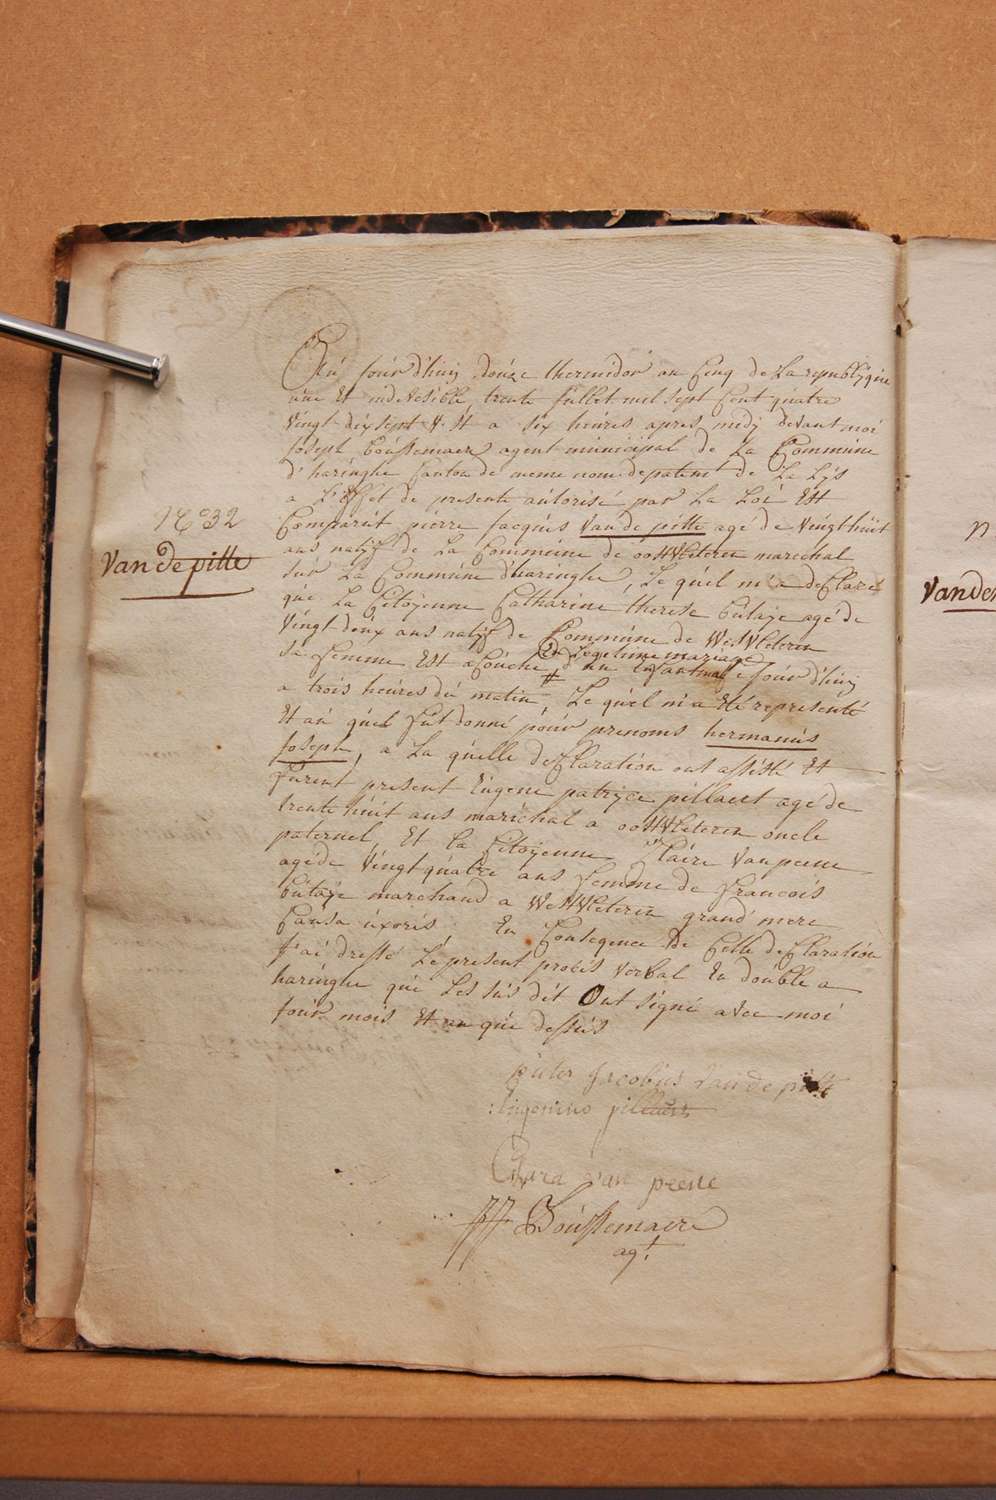 Au jourd'huij douze thermidor an Cinq de La republique
une et indivisible trente juillet mil sept Cent quatre
vingt dix sept V. St a six heures apres midy devant moi
Joseph Coussemaer agent municipal de La Commune
d'haringhe Canton de meme nom departemt de La Lÿs
a L'effet de presente autorisé par La Loi Est
Comparut pierre Jacques Van de pitte agé de Vingt huit
ans natif de La Commune de oostVleteren marechal
sur La Commune d'haringhe, Le quel m'a deClaré
que La Citoÿenne Catharine therese butaye agé de
Vingt deux ans natif de Commune de WestVleteren
En Legitime mariage
sa femme Est acouché d'un Enfant male jour d'huij
a trois heures du matin, Le quel m'a Eté representé
Et au quel fut donné pour prenoms hermanus
Joseph, a La quelle deClaration ont assisté Et
furent present Eugene patryce pillaert agé de
trente huit ans marichal a oostVleteren oncle
paternel, Et La Citoÿenne Claire Van peene
agé de Vingt quatre ans femme de francois
butaÿe marchand a WestVleteren grand'mere
Causa uxoris. En Conseqence de Celle deClaration
J'ai dressé Le present procés Verbal En double a
haringhe que Les sus dit Ont signé avec moi
jour mois Et an que dessus
N° 32
Van de pitte
pieter Jacobus Van de pitte
Eugenius pillaert
Clara van peene
JJ Coussemaere
agt.
N
Vanden